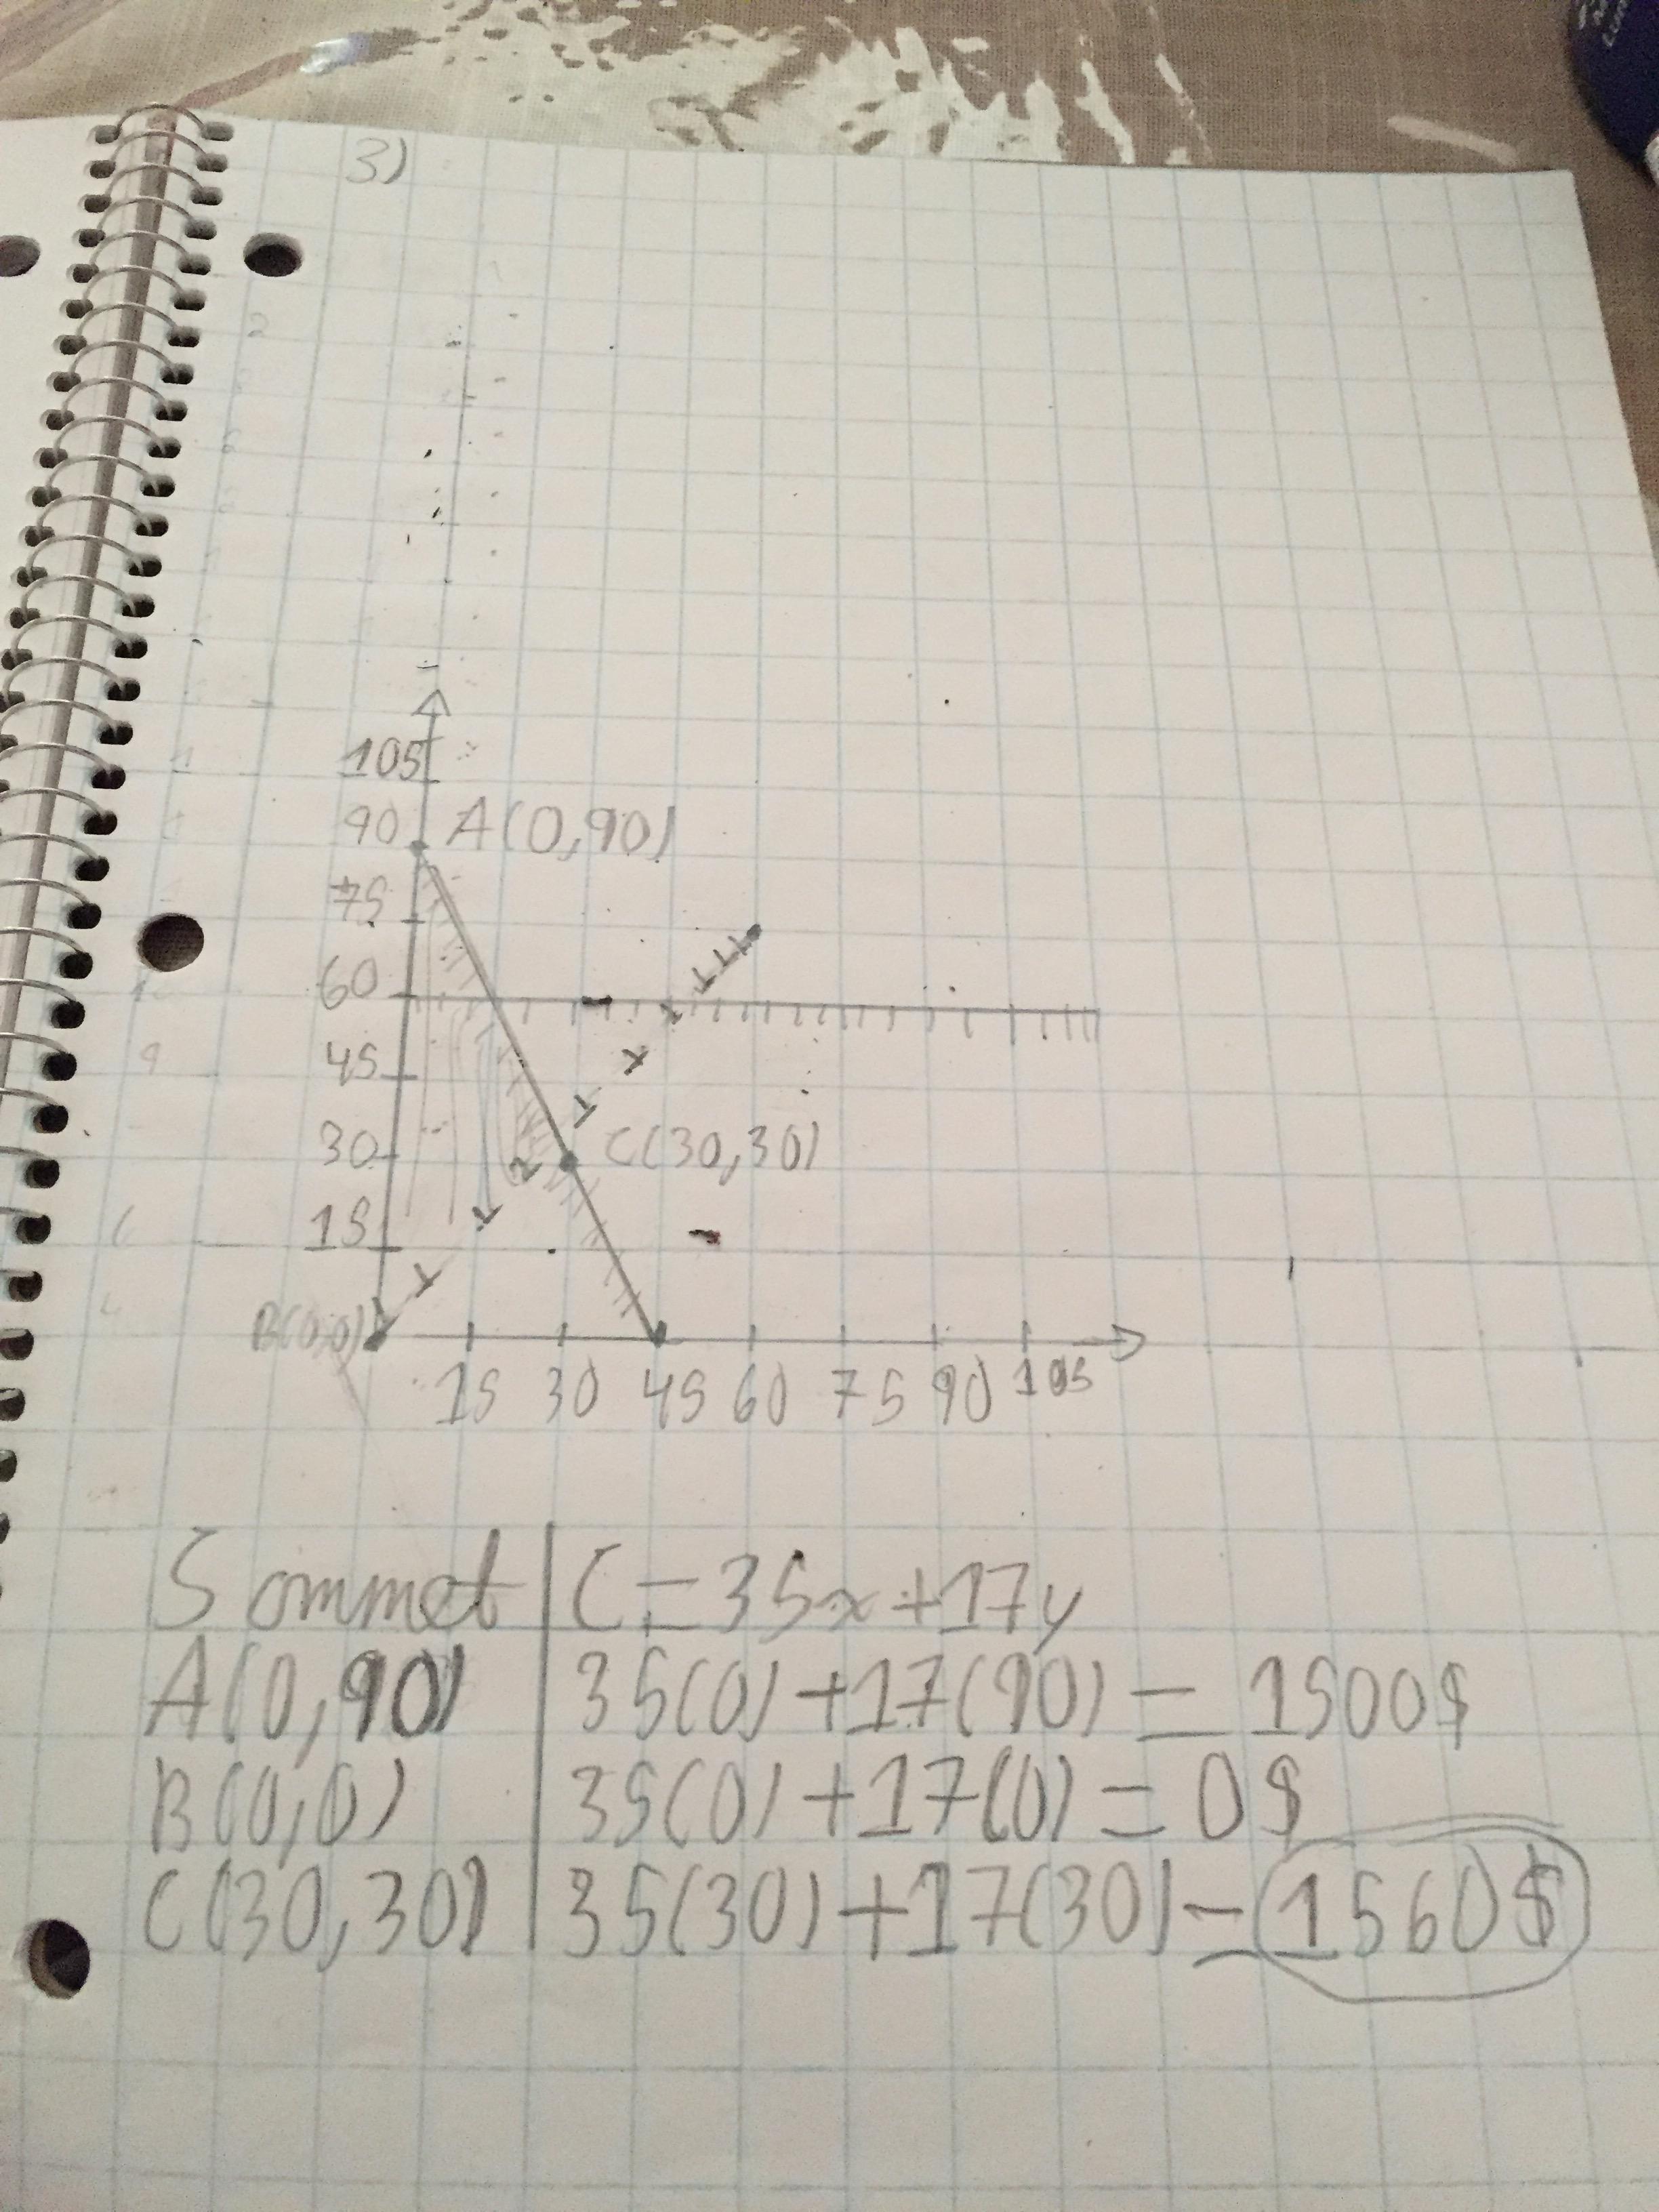 3)
105
90 A(0,90)
75
60
45
30 C(30,30)
15
B(0,0)
15 30 45 60 75 90 105
Sommet C=35x+17y
A(0,90) 35(0)+17(90)=1500$
B(0,0) 35(0)+17(0)=0$
C(30,30) 35(30)+17(30)=1560$